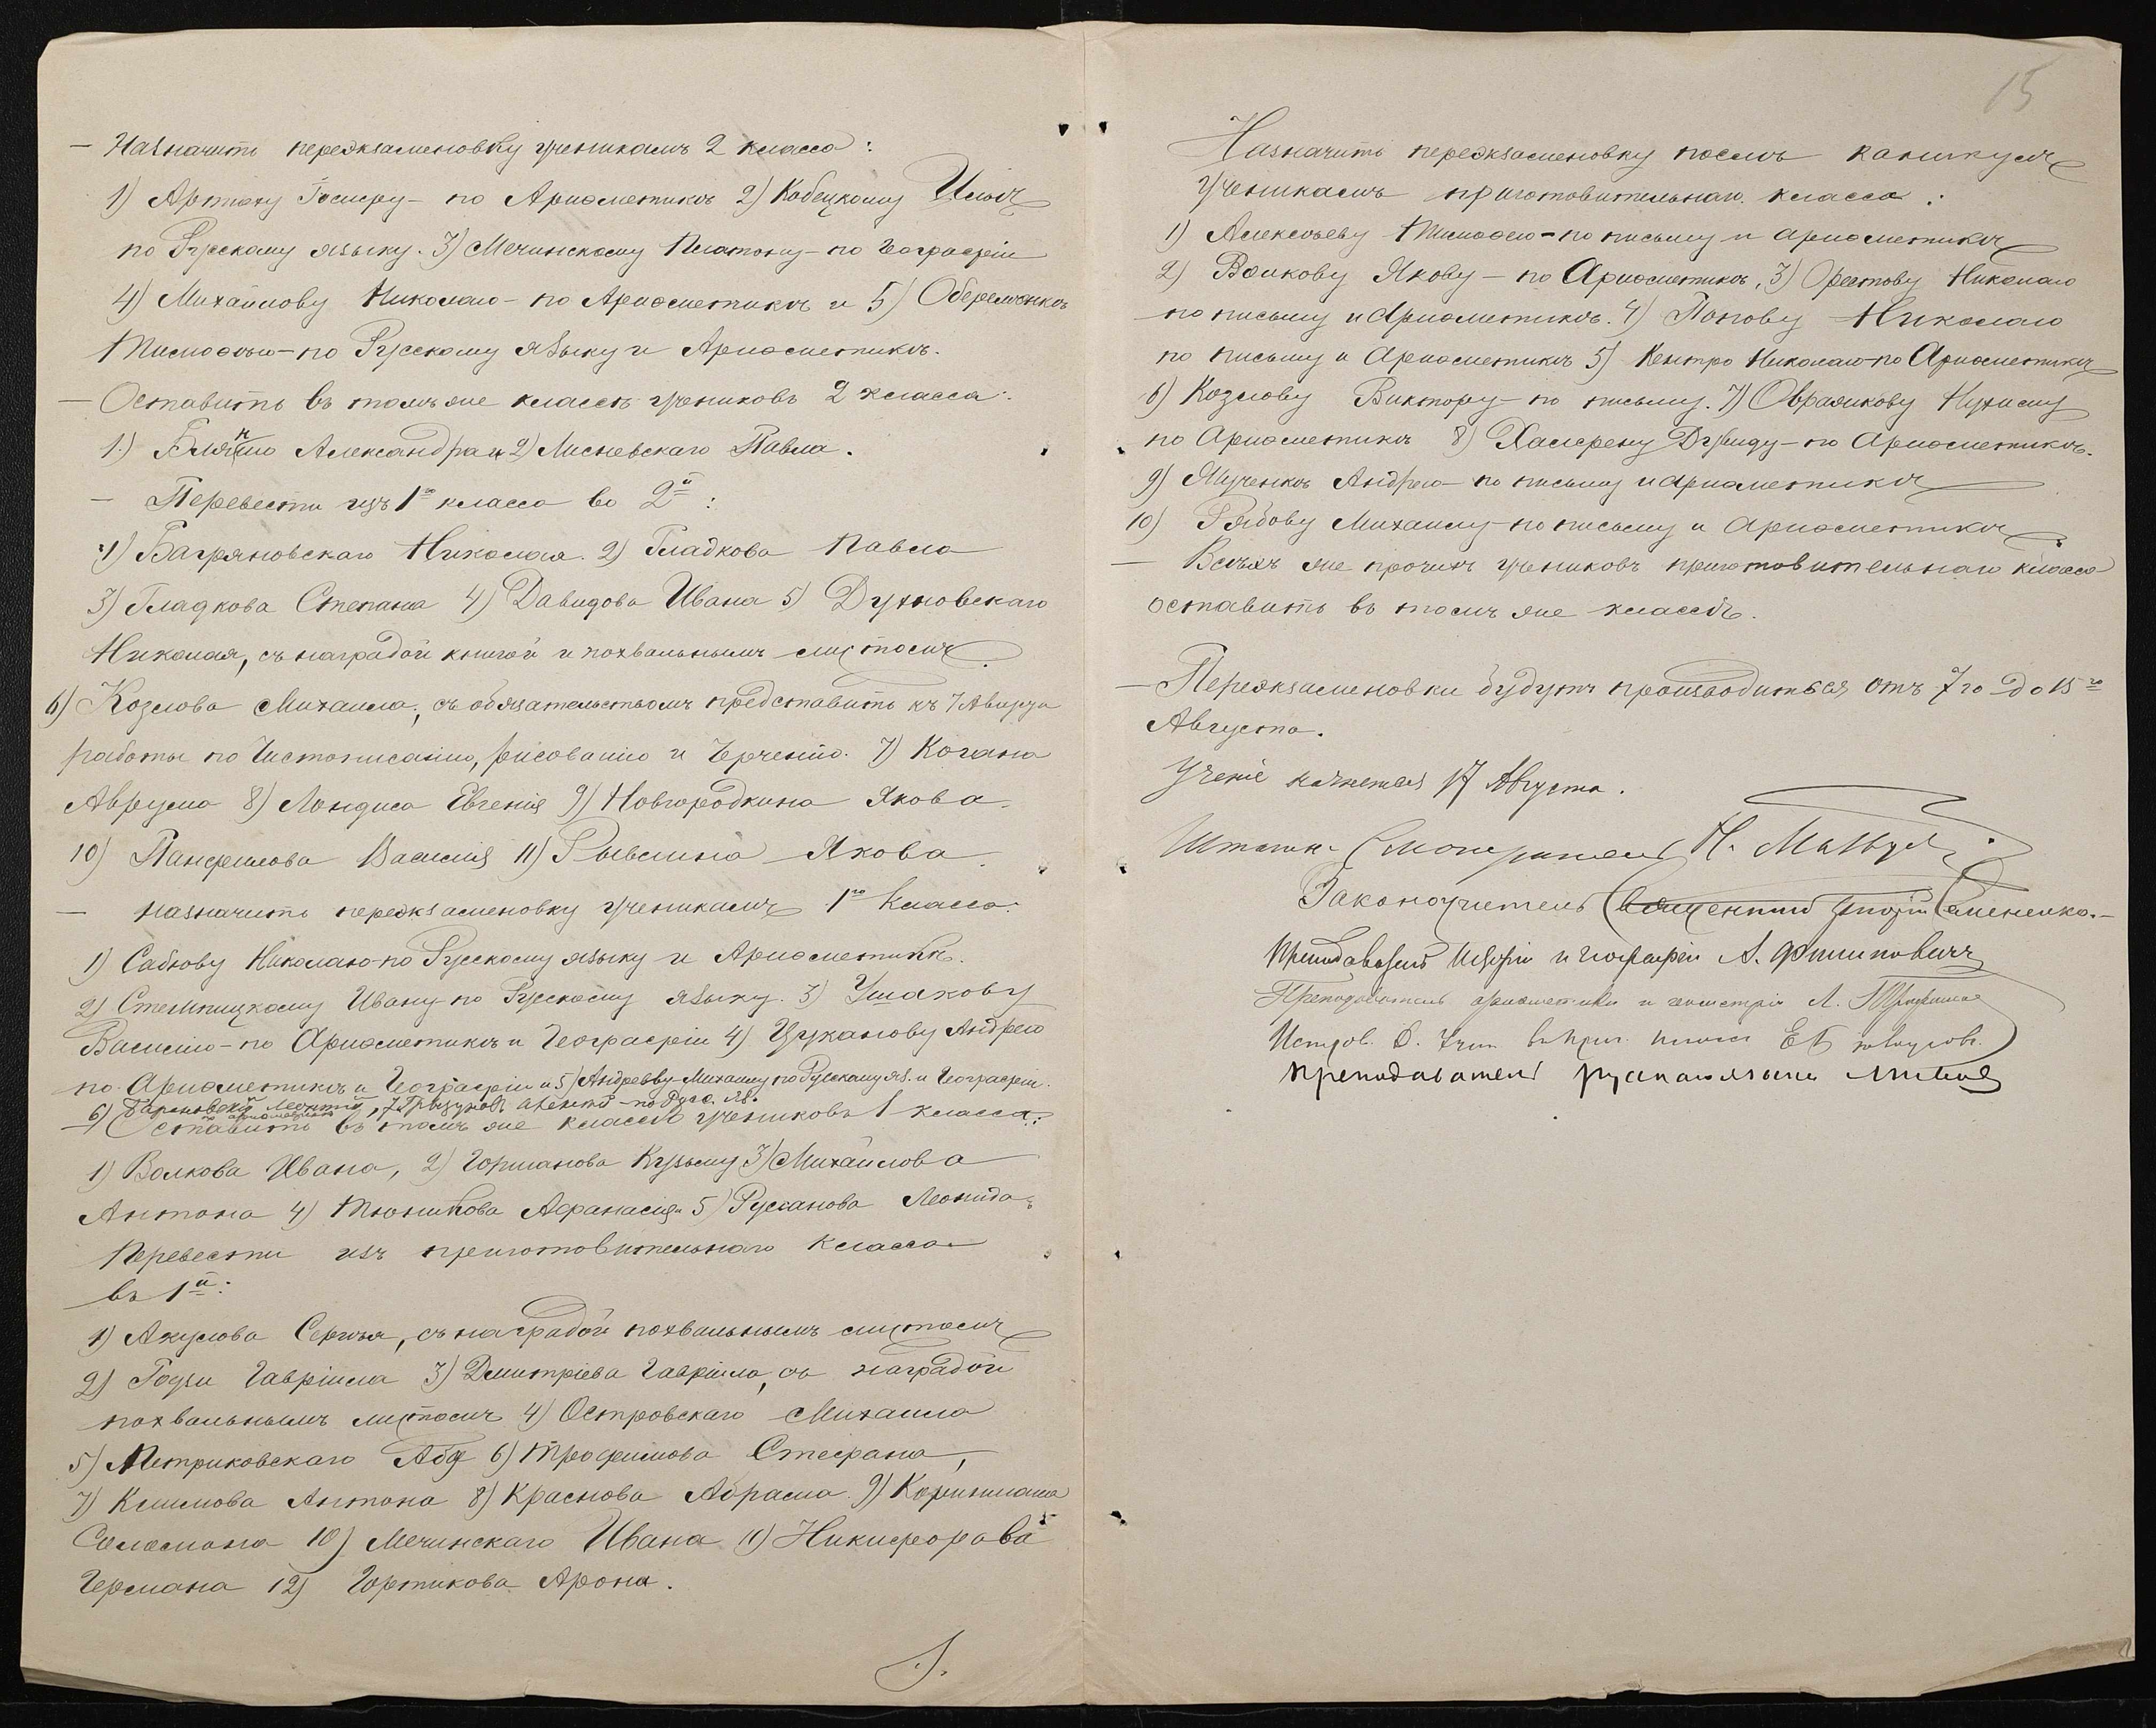 — Назначить переэкзаменовку ученикамъ 2 класса:
1) Артюху Іосифу — по Ариѳметикѣ 2) Кобецкому Ильѣ
по Русскому языку. 3) Мечинскому Платону — по Географіи
4) Михайлову Николаю — по Ариѳметикѣ и 5) Оберемченкѣ
Тимоѳею — по Русскому языку и Ариѳметикѣ.
— Оставить въ томъ же классѣ учениковъ 2 класса:
1) Александра и 2) Лисневскаго Павла.
— Перевести изъ 1го класса во 2й:
1) Багряновскаго Николая. 2) Гладкова Павла
3) Гладкова Степана 4) Давидова Ивана 5) Духновскаго
Николая, съ наградой книгой и похвальнымъ листомъ.
6) Козлова Михаила, съ обязательствомъ представить къ 7 Августа
работы по Чистописанію, рисованію и Черченію. 7) Когана
Аврума 8) Лондиса Евгенія 9) Новгородкина Якова.
10) Панфилова Василія 11) Рывлина Якова.
— назначить переэкзаменовку ученикамъ 1го класса:
1) Сабхову Николаю — по Русскому языку и Ариѳметикѣ.
2) Стемпицкому Ивану — по Русскому языку. 3) Ушакову
Василію — по Ариѳметикѣ и Географіи 4) Цуканову Андрею
по Ариѳметикѣ и Географіи и 5) Андрееву Михаилу по Русскому яз. и Географіи.
6) Барановскій Леонтій по ариѳметикѣ, 7) Грызуновъ — по Русс. яз.
— Оставить въ томъ же классѣ учениковъ 1 класса:
1) Волкова Ивана, 2) Горшанова Кузьму 3) Михайлова
Антона 4) Тюникова Аѳанасія 5) Русанова Леонида
Перевести изъ приготовительнаго класса
въ 1й:
1) Акулова Сергѣя, съ наградой похвальнымъ листомъ
2) Годзи Гавріила 3) Дмитріева Гавріила, съ наградой
похвальнымъ листомъ 4) Островскаго Михаила
5) Петриковскаго 6) Трофимова Стефана,
7) Климова Антона 8) Краснова Абрама. 9) Коришмана
Соломона 10) Мечинскаго Ивана 11) Никифорова
Германа 12) Гортикова Арона.
15
Назначить переэкзаменовку послѣ каникулъ
ученикамъ приготовительнаго класса:
1) Алексѣеву Тимоѳею — по письму и ариѳметикѣ
2) Волкову Якову — по Ариѳметикѣ, 3) Орестову Николаю
по письму и Ариѳметикѣ. 4) Попову Николаю
по письму и Ариѳметикѣ 5) Кентро Николаю — по Ариѳметикѣ
6) Козлову Виктору — по письму. 7) Овражкову Нухиму
по Ариѳметикѣ 8) Давиду — по Ариѳметикѣ.
9) Ященкѣ Андрею — по письму и ариѳметикѣ
10) Рябову Михаилу — по письму и Ариѳметикѣ
— Всѣхъ же прочихъ учениковъ приготовительнаго класса
оставить въ томъ же классѣ.
— Переэкзаменовки будутъ производиться отъ 7го до 15го
Августа.
Ученіе начнется 17 Августа.
Штатн. Смотритель Н.
Законоучитель Священникъ Семененко.
Преподаватель Исторіи и Географіи А. Филиповичъ
Преподаватель ариѳметики и геометріи А.
Исправ. д. Учит. въ Приг. классѣ
Преподаватель русскаго языка